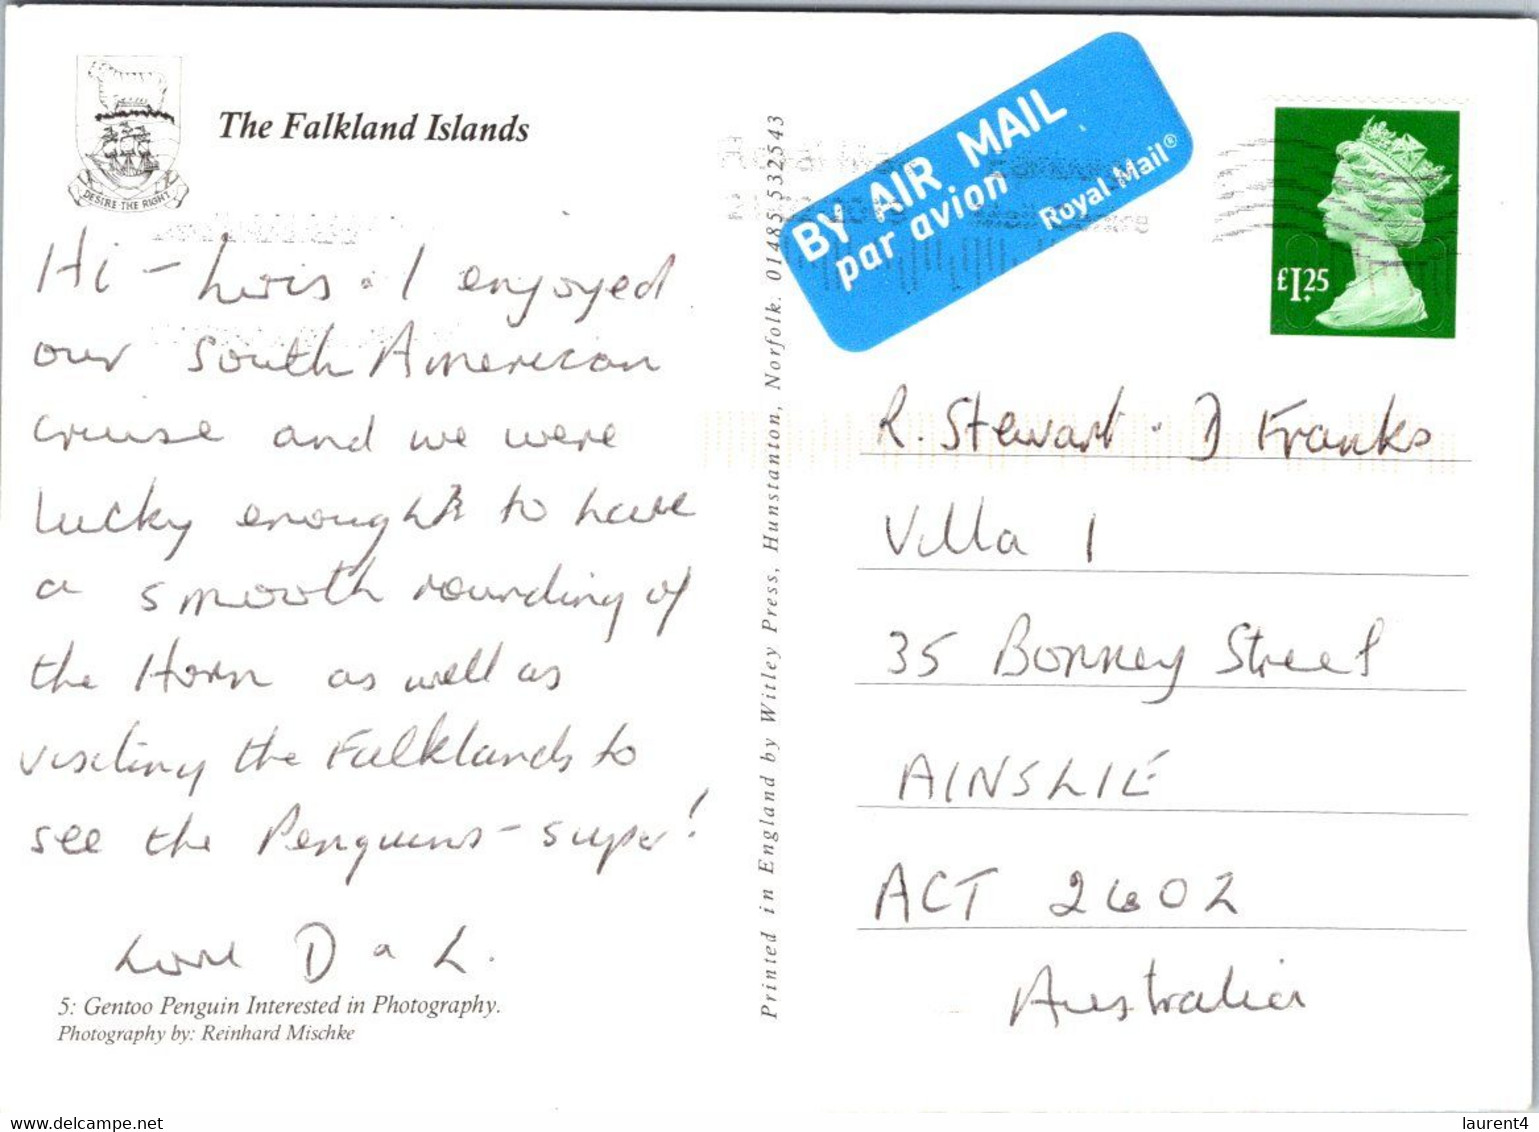 The Falkland Islands
DESIRE THE RIGHT
Hi - Lois. I enjoyed
our South American
cruise and we were
lucky enough to have
a smooth rounding of
the Horn as well as
visiting the Falklands to
see the Penguins - super!
Love D a L.
5: Gentoo Penguin Interested in Photography.
Photography by: Reinhard Mischke
Printed in England by Witley Press, Hunstanton, Norfolk. 01485 532543
BY AIR MAIL
par avion
Royal Mail®
£1.25
R. Stewart · D Franks
Villa 1
35 Bonney Street
AINSLIE
ACT 2602
Australia
www.delcampe.net
laurent4